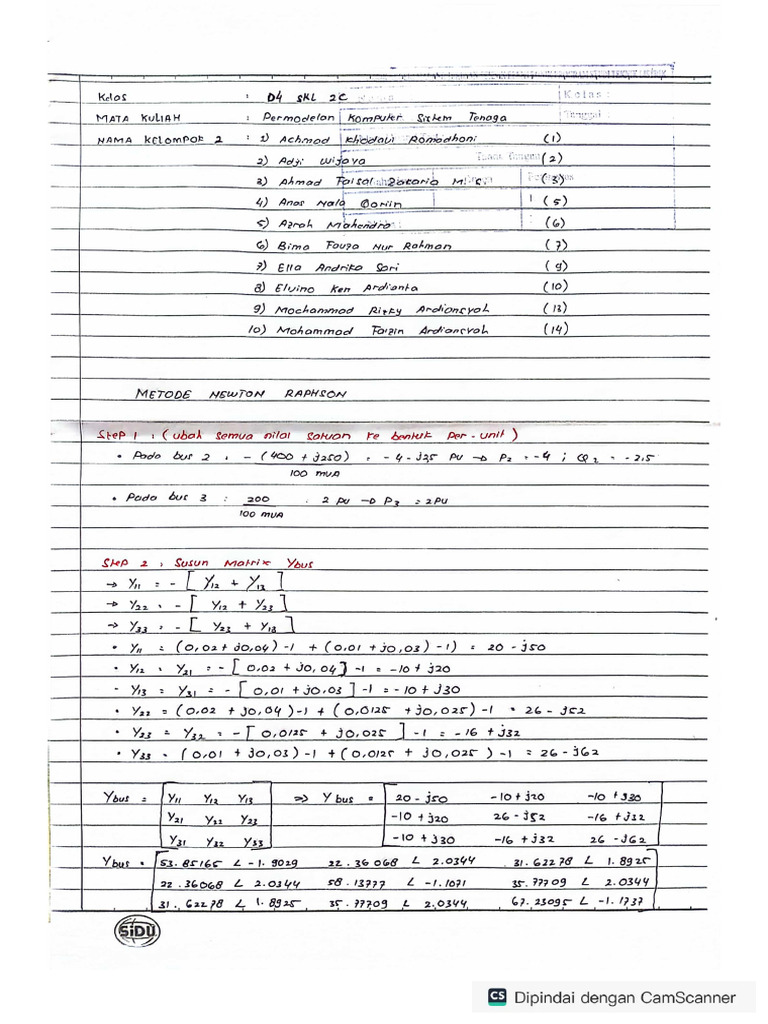 Kelas : D4 SKL 2C
Kelas :
MATA KULIAH : Permodelan Komputer Sistem Tenaga
NAMA KELOMPOK 2 : 1) Achmad Khoddavi Romadhoni (1)
2) Adji Wijaya (2)
3) Ahmad Faisal Zakaria M. S. (3)
4) Anas Nala Qoriin (5)
5) Azrah Mahendra (6)
6) Bima Fauza Nur Rahman (7)
7) Ella Andrika Sari (9)
8) Elvino Ken Ardianta (10)
9) Mochammad Rizky Ardiansyah (13)
10) Mohammad Faizin Ardiansyah (14)
METODE NEWTON RAPHSON
Step 1 : (ubah semua nilai satuan ke bentuk per-unit)
• Pada bus 2 : - (400 + j250) = -4 - j2,5 pu → P2 = -4 ; Q2 = -2.5
100 MVA
• Pada bus 3 : 200 : 2 pu → P3 = 2 PU
100 MVA
Step 2 : Susun Matrix Ybus
→ Y11 = - [ Y12 + Y13 ]
→ Y22 = - [ Y12 + Y23 ]
→ Y33 = - [ Y23 + Y13 ]
• Y11 = (0,02 + j0,04)-1 + (0.01 + j0,03)-1) = 20 - j50
• Y12 = Y21 = - [ 0.02 + j0,04 ] -1 = -10 + j20
- Y13 = Y31 = - [ 0,01 + j0.03 ] -1 = -10 + j30
• Y22 = (0,02 + j0,04)-1 + (0,0125 + j0,025)-1 = 26 - j52
• Y23 = Y32 = - [ 0,0125 + j0.025 ] -1 = -16 + j32
• Y33 = (0.01 + j0,03)-1 + (0,0125 + j0,025)-1 = 26 - j62
Ybus = Y11 Y12 Y13 => Ybus = 20 - j50 -10 + j20 -10 + j30
Y21 Y22 Y23 -10 + j20 26 - j52 -16 + j32
Y31 Y32 Y33 -10 + j30 -16 + j32 26 - j62
Ybus = 53.85165 ∠ -1.9029 22.36068 ∠ 2.0344 31.62278 ∠ 1.8925
22.36068 ∠ 2.0344 58.13777 ∠ -1.1071 35.77709 ∠ 2.0344
31.62278 ∠ 1.8925 35.77709 ∠ 2.0344 67.23095 ∠ -1.1737
SiDU
CS Dipindai dengan CamScanner